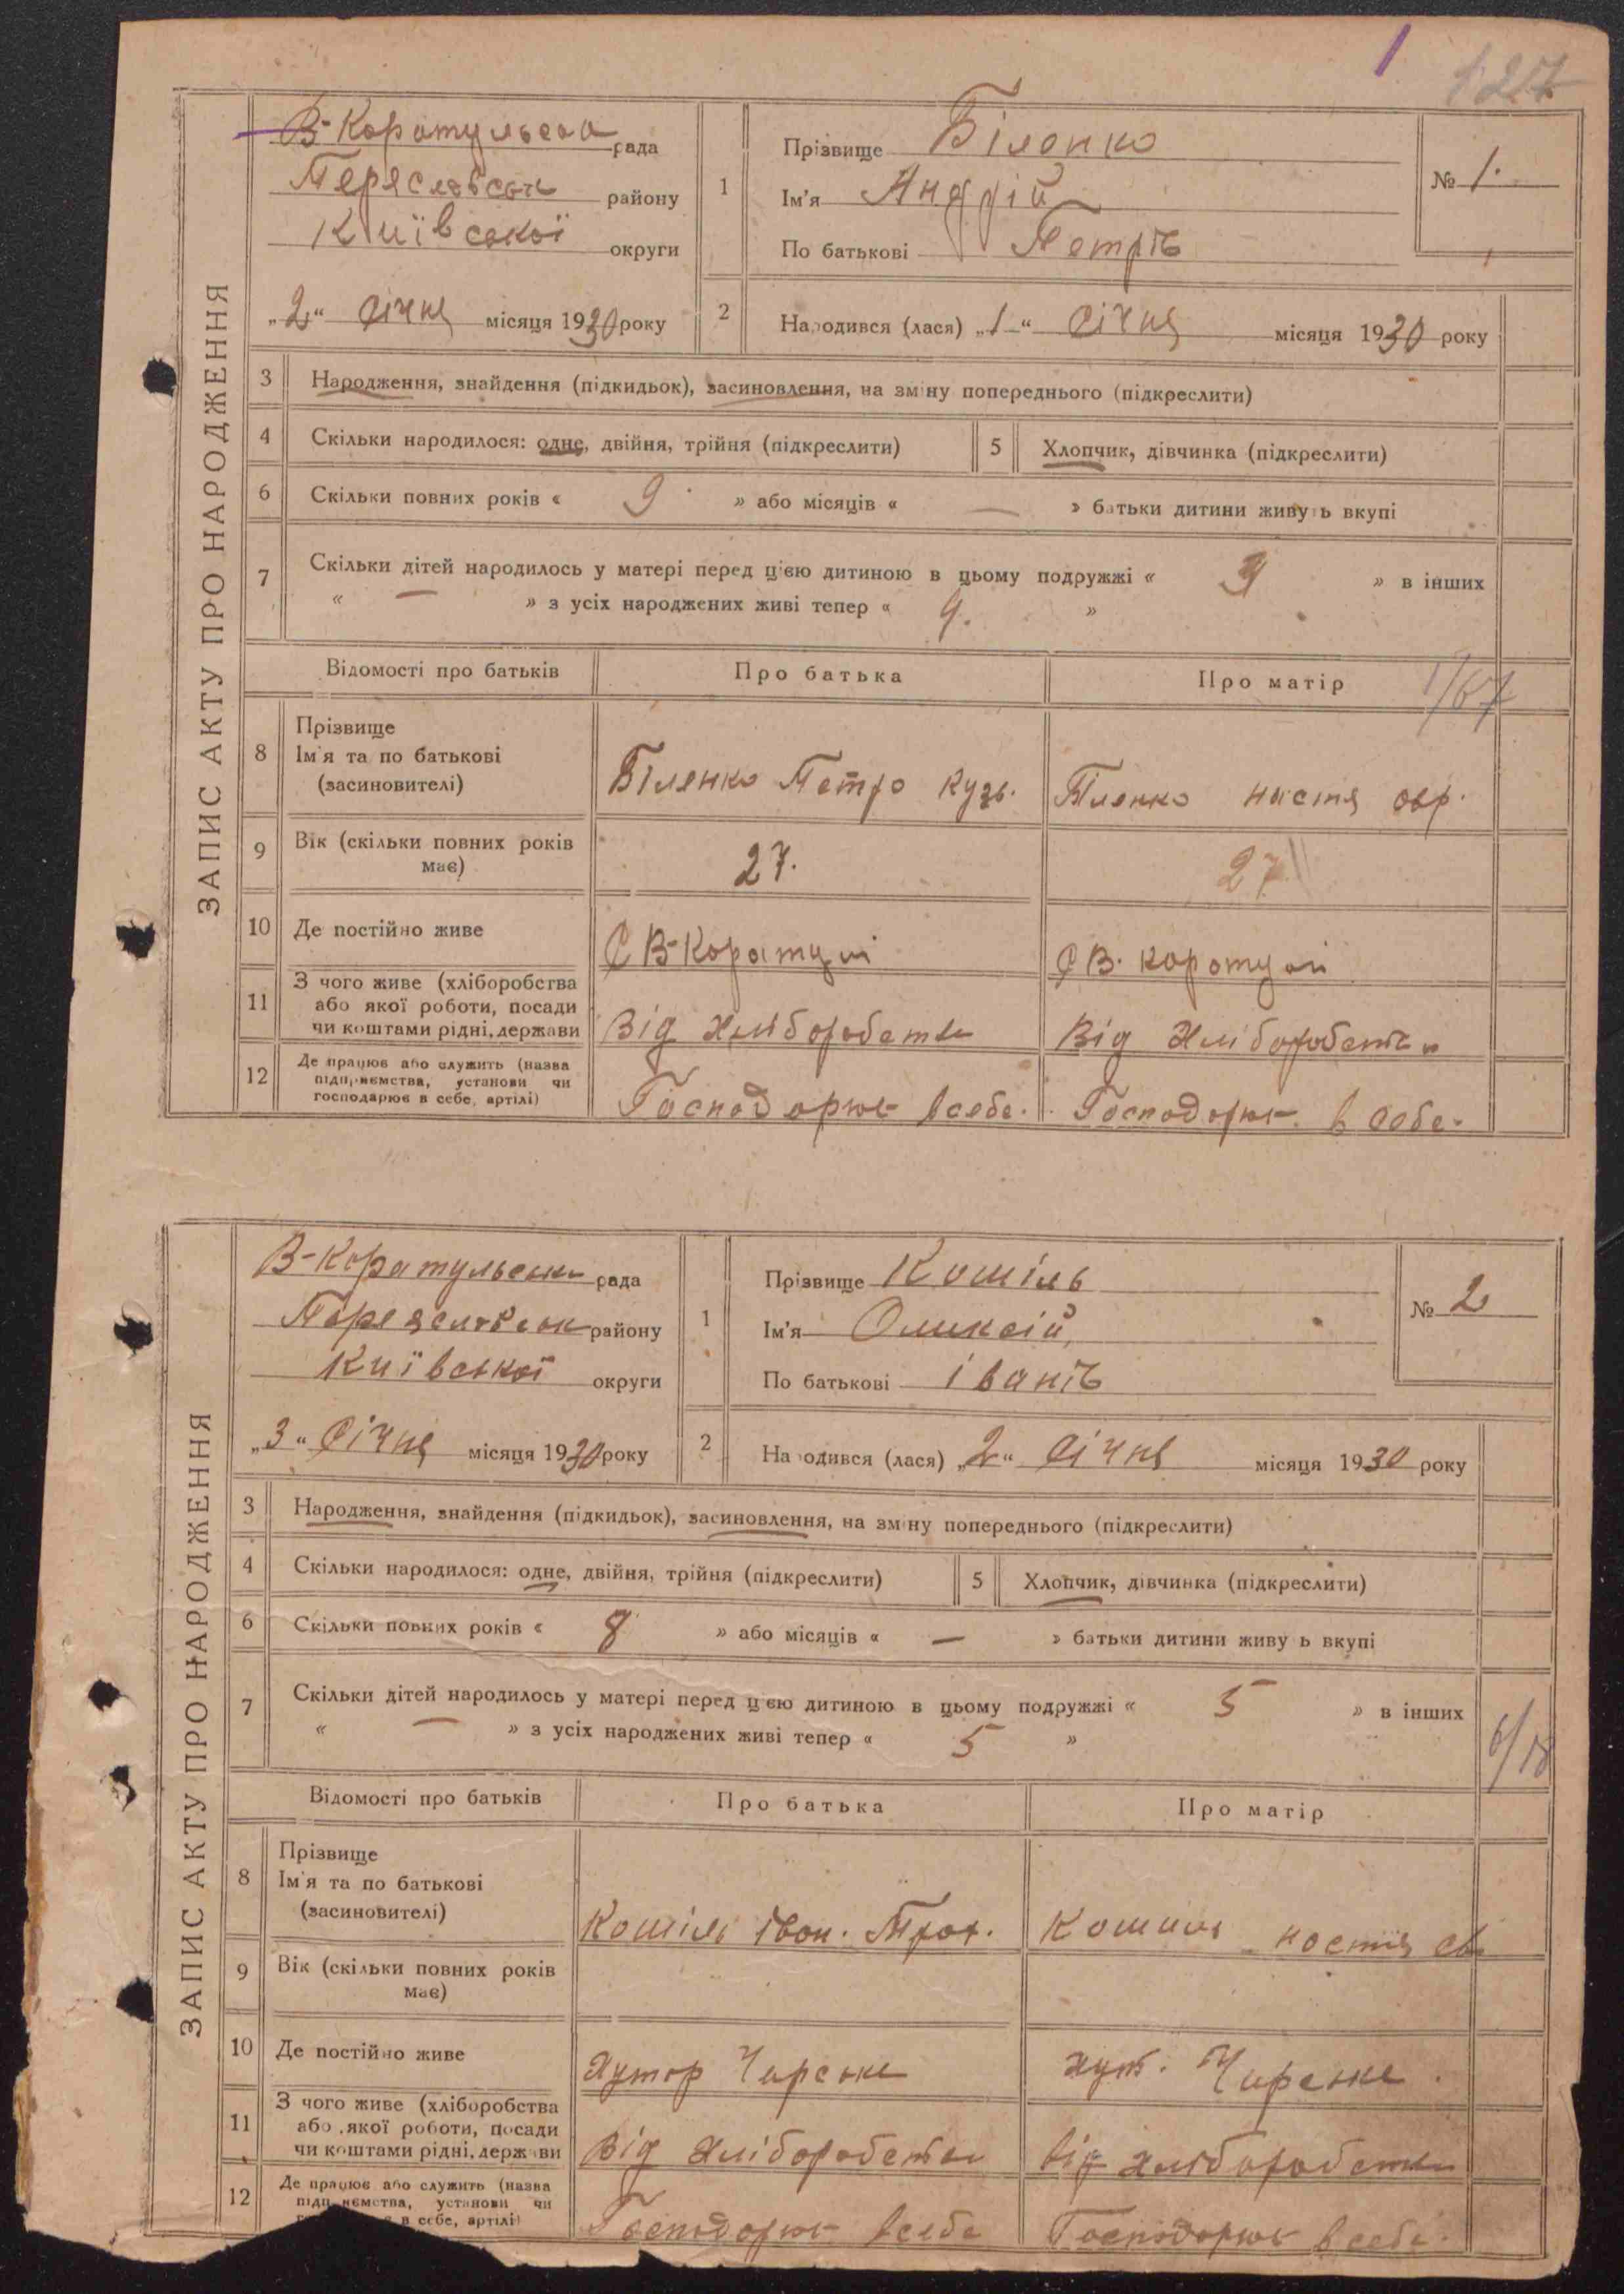 1
ЗАПИС АКТУ ПРО НАРОДЖЕННЯ
В-Каратульська рада
Переславськ району
Київської округи
„2“ Січня місяця 1930 року
1
Прізвище Біленко
Ім'я Андрій
По батькові Петрів
№ 1.
2
Народився (лася) „1“ Січня місяця 1930 року
3 Народження, знайдення (підкидьок), засиновлення, на зміну попереднього (підкреслити)
4 Скільки народилося: одне, двійня, трійня (підкреслити)
5 Хлопчик, дівчинка (підкреслити)
6 Скільки повних років « 9 » або місяців « — » батьки дитини живуть вкупі
7 Скільки дітей народилось у матері перед цією дитиною в цьому подружжі « 3 » в інших
« — » з усіх народжених живі тепер « 4. »
Відомості про батьків Про батька Про матір
1/67
8 Прізвище
Ім'я та по батькові
(засиновителі)
Біленко Петро Кузь. Біленко настя
9 Вік (скільки повних років
має)
27. 27
10 Де постійно живе
С В-Каратулі С В. каротулі
11 З чого живе (хліборобства
або якої роботи, посади
чи коштами рідні, держави
Від Хліборобства Від Хліборобства
12 Де працює або служить (назва
підприємства, установи чи
господарює в себе, артілі)
Господарює в себе. Господорює в себе.
ЗАПИС АКТУ ПРО НАРОДЖЕННЯ
В-Каратульська рада
Переяславськ району
Київської округи
„3“ Січня місяця 1930 року
1
Прізвище Кошіль
Ім'я Олексій
По батькові іванів
№ 2
2
Народився (лася) „2“ Січня місяця 1930 року
3 Народження, знайдення (підкидьок), засиновлення, на зміну попереднього (підкреслити)
4 Скільки народилося: одне, двійня, трійня (підкреслити)
5 Хлопчик, дівчинка (підкреслити)
6 Скільки повних років « 8 » або місяців « — » батьки дитини живу ь вкупі
7 Скільки дітей народилось у матері перед цією дитиною в цьому подружжі « 5 » в інших
« — » з усіх народжених живі тепер « 5 »
6/18
Відомості про батьків Про батька Про матір
8 Прізвище
Ім'я та по батькові
(засиновителі)
Кошіль Іван. Троф. Кошіль настя
9 Вік (скільки повних років
має)
10 Де постійно живе
Хутор Чирське Хут. Чирське
11 З чого живе (хліборобства
або якої роботи, посади
чи коштами рідні, держави
Від Хліборобства Від Хліборобства
12 Де працює або служить (назва
підприємства, установи чи
в себе, артілі)
Господорює в себе Господорює в себе.